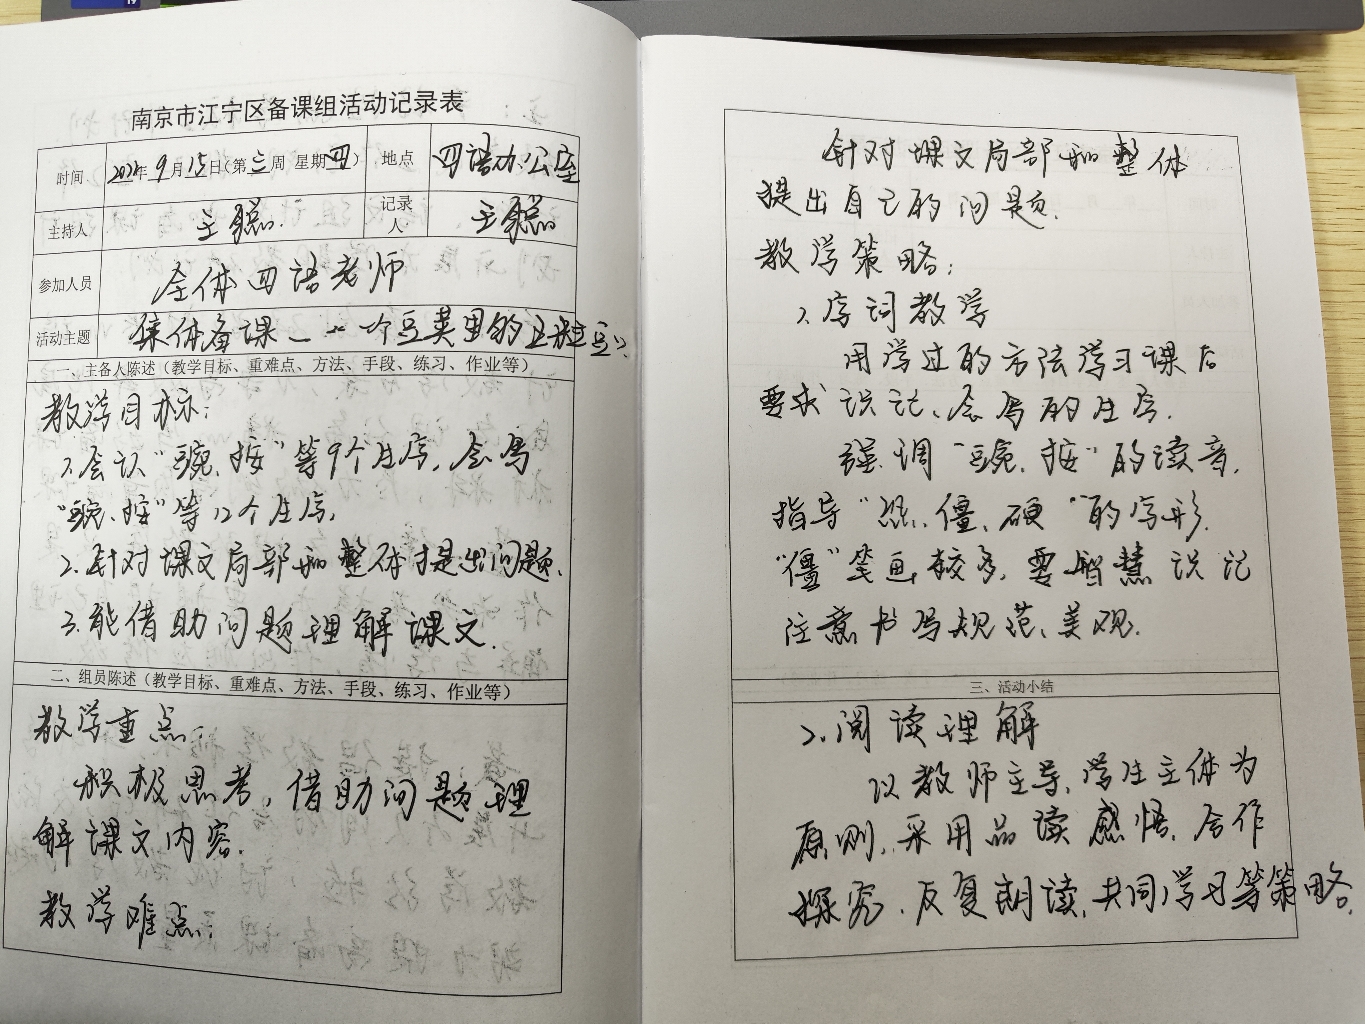 南京市江宁区备课组活动记录表
时间 年9月15日(第三周 星期四) 地点 四语办公室
主持人 记录人
参加人员 全体四语老师
活动主题 集体备课——一个豆荚里的五粒豆
一、主备人陈述(教学目标、重难点、方法、手段、练习、作业等)
教学目标:
1.会认“豌、按”等9个生字,会写
“豌、按”等12个生字,
2.针对课文局部和整体提出问题、
3.能借助问题理解课文.
二、组员陈述(教学目标、重难点、方法、手段、练习、作业等)
教学重点:
积极思考,借助问题理
解课文内容.
教学难点:
针对课文局部和整体
提出自己的问题.
教学策略:
1.字词教学
用学过的方法学习课后
要求识记、会写的生字.
强调“豌、按”的读音,
指导“恐、僵、硬”的字形.
“僵”笔画较多,要智慧识记
注意书写规范、美观.
三、活动小结
2.阅读理解
以教师主导、学生主体为
原则,采用品读感悟、合作
探究、反复朗读、共同学习等策略.